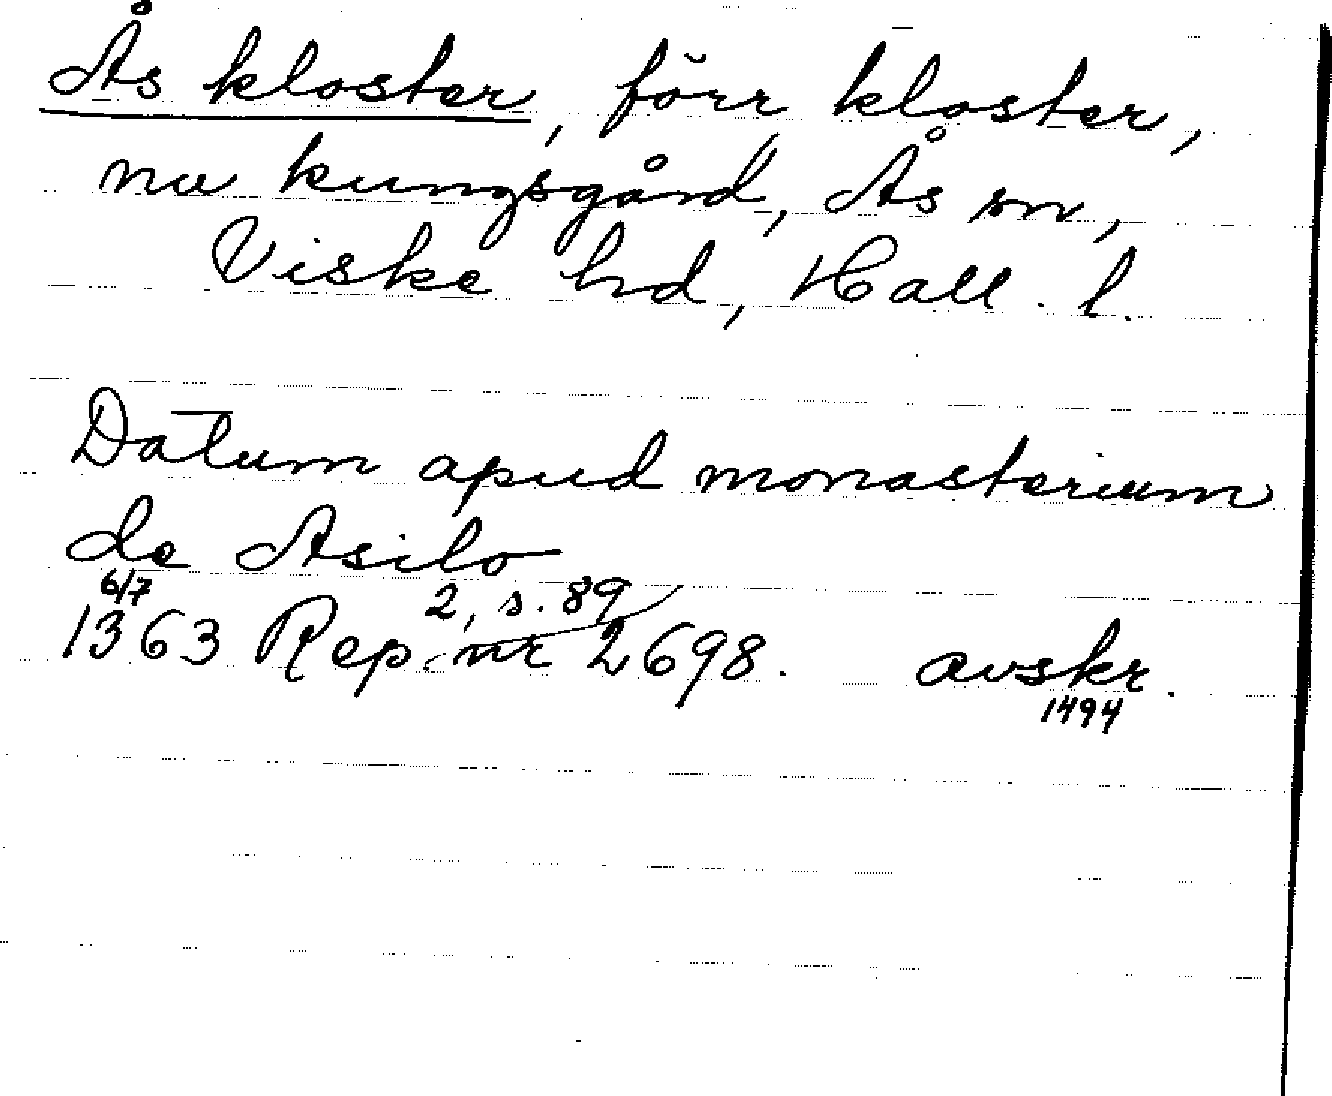 Ås kloster, förr kloster,
nu kungsgård, Ås sn,
Viske hd, Hall. l.
Datum apud monasterium
de Asilo
6/7 2, s. 89
1363 Rep nr 2698. avskr.
1494